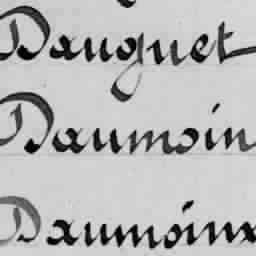 Dauguet
Daumoin
Daumoinx